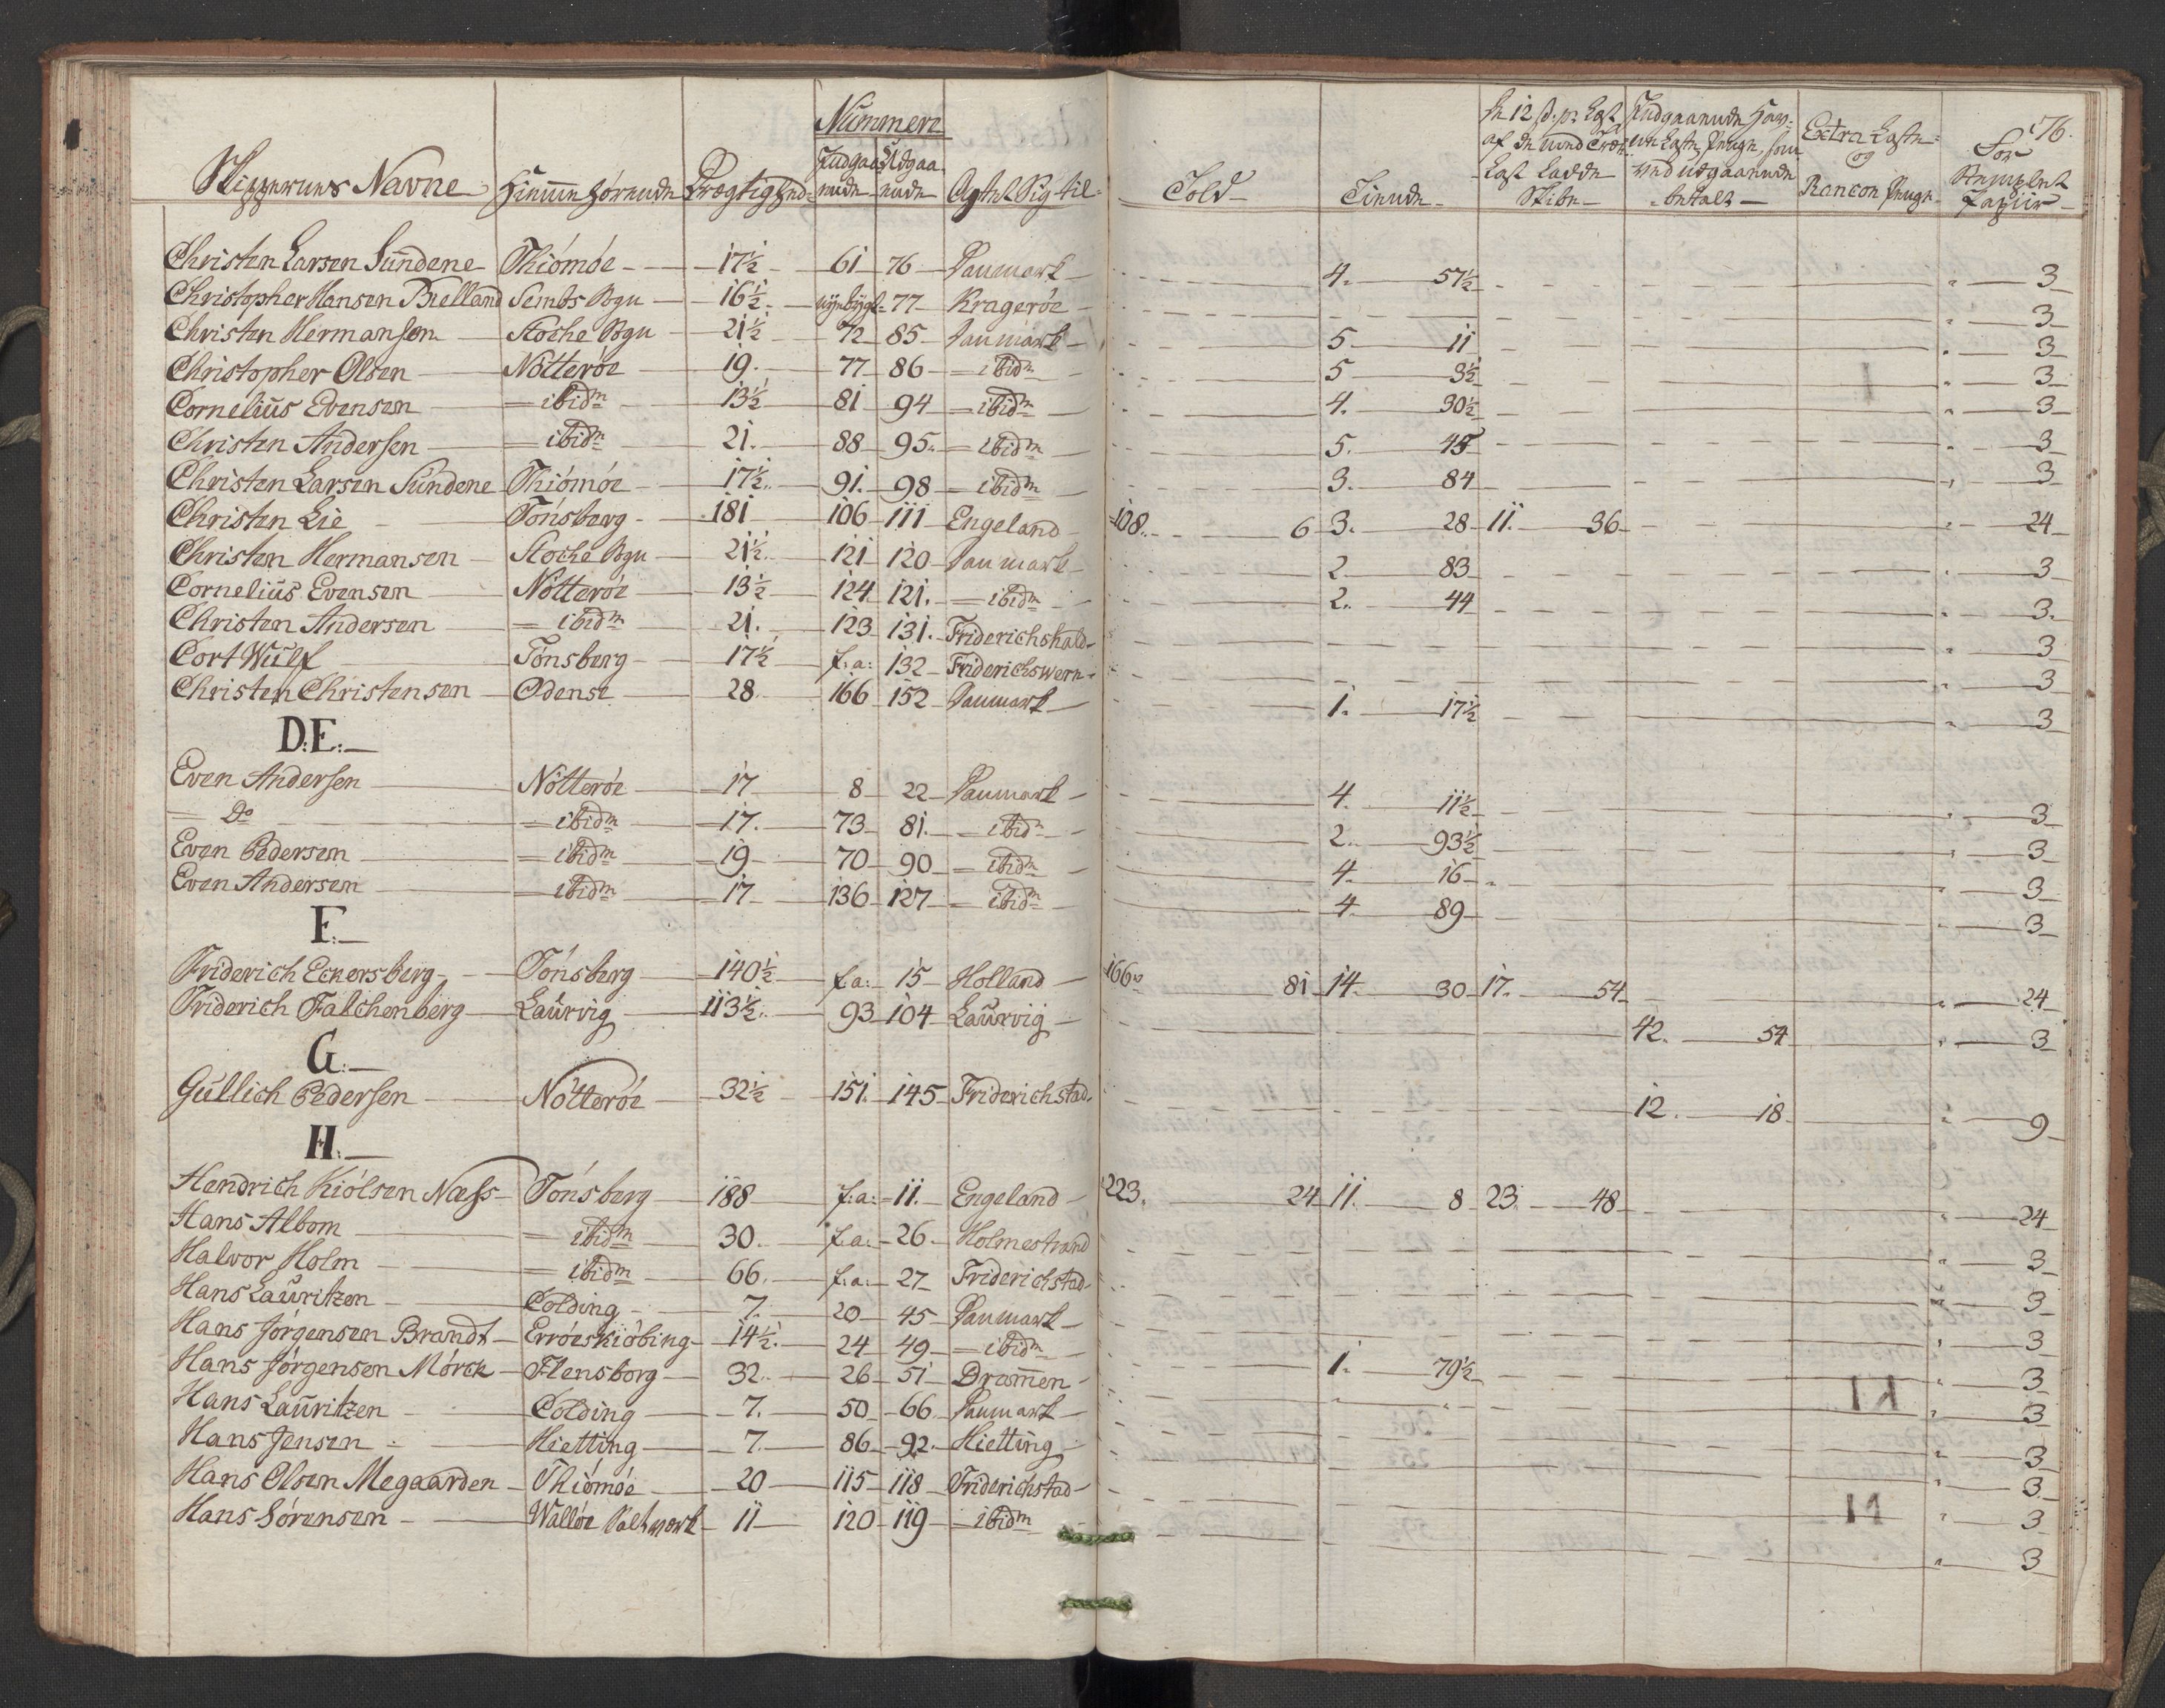 176.
Nummere
Skippernes Navne Hiemmehørende Drægtighed Indgaaende Udgaaende Agtet Sig til Told Tiende
á 12 s. pr. Læst af de med Træ Last Ladde Skibe
Indgaaende betalt
Extra Læste og Rancon Penge
For Stemplet Papiir
Christen Larsen Sundene Thiömöe 17½ 61 76 Danmark 4. 57½ 3
Christopher Hansen Bielland Sembs Sogn 16½ nÿebÿgt 77 Krageröe 3
Christen Hermansen Stoche Sogn 21½ 72 85 Danmark 5 11 3
Christopher Olsen Nötteröe 19. 77 86 ibidm 5 3½ 3
Cornelius Evensen ibidm 13½ 81 94 ibidm 4. 30½ 3
Christen Andersen ibidm 21. 88 95. ibidm 5. 45 3
Christen Larsen Sundene Thiömöe 17½ 91. 98 ibidm 3. 84 3
Christen Lie Tönsberg 181 106 111 Engeland 108. 6 3. 28 11. 36 24
Christen Hermansen Stoche Sogn 21½ 121 120 Danmark 2 83 3
Cornelius Evensen Nötteröe 13½ 124 121. ibidm 2. 44 3.
Christen Andersen ibidm 21. 123 131. Friderichshald 3
Cort Wulf Tönsberg 17½ f:a: 132 Friderichswern 3
Christen Christensen Odense 28. 166 152 Danmark 1. 17½ 3
D:E:
Even Andersen Nötteröe 17 8 22 Danmark 4. 11½ 3
Do ibidm 17. 73 81. ibidm 2. 93½ 3
Even Pedersen ibidm 19 70 90 ibidm 4. 16 3
Even Andersen ibidm 17 136 127 ibidm 4. 89 3
F:
Friderich Eckersberg Tönsberg 140½ f:a: 15 Holland 166. 81 14. 30 17. 54 24
Friderich Falchenberg Laurvig 113½ 93 104 Laurvig 42. 54 3
G:
Gullich Pedersen Nötteröe 32½ 151. 145 Friderichstad 12. 18 9
H:
Hendrich Kiölsen Næss Tönsberg 188 f:a: 11. Engeland 223. 24 11. 8 23. 48 24
Hans Albom ibidm 30. f:a: 26. Holmestrand 3
Halvor Holm ibidm 66. f:a: 27 Friderichstad 3
Hans Lauritzen Colding 7. 20 45 Danmark 3
Hans Jörgensen Brandt Erröeskiöbing 14½ 24 49 ibidm 1. 79½ 3
Hans Jörgensen Mörck Flensborg 32. 26 51 Dramen 3
Hans Lauritzen Colding 7. 50 66 Danmark 3
Hans Jensen Hietting 7. 86 92. Hietting 3
Hans Olsen Megaarden Thiömöe 20 115 118 Friderichstad 3
Hans Sörensen Wallöe Saltwerk 11 120 119 ibidm 3